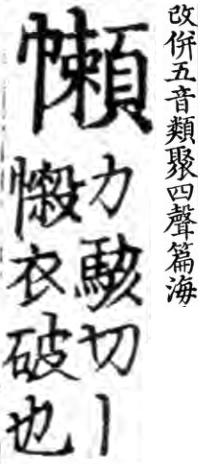 改併五音類聚四聲篇海
力駭切丨
衣破也